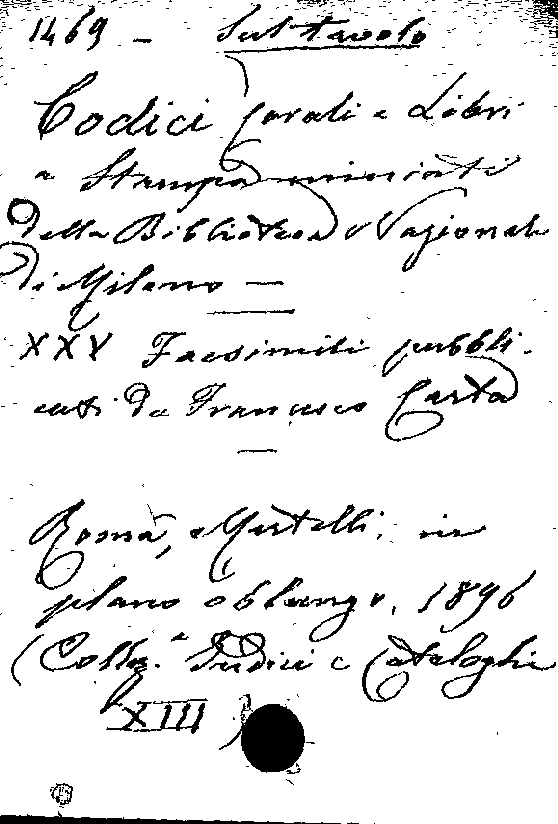 1469 – Sul tavolo
Codici corali e Libri
a Stampa miniati
della Biblioteca Nazionale
di Milano —
XXV Facsimili pubbli-
cati da Francesco Carta
—
Roma, Martelli, in
plano oblungo, 1896
(Collez.ª Indici e Cataloghi
XIII)